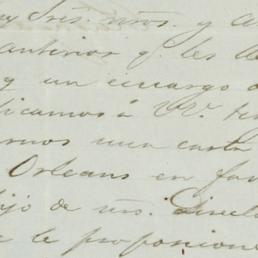 Sres. nros. y a
anterior q. les de
y un encargo d
dicamos á VV. te
rnos una carta
Orleans en fav
hijo de nro. Direc
e le proporcione